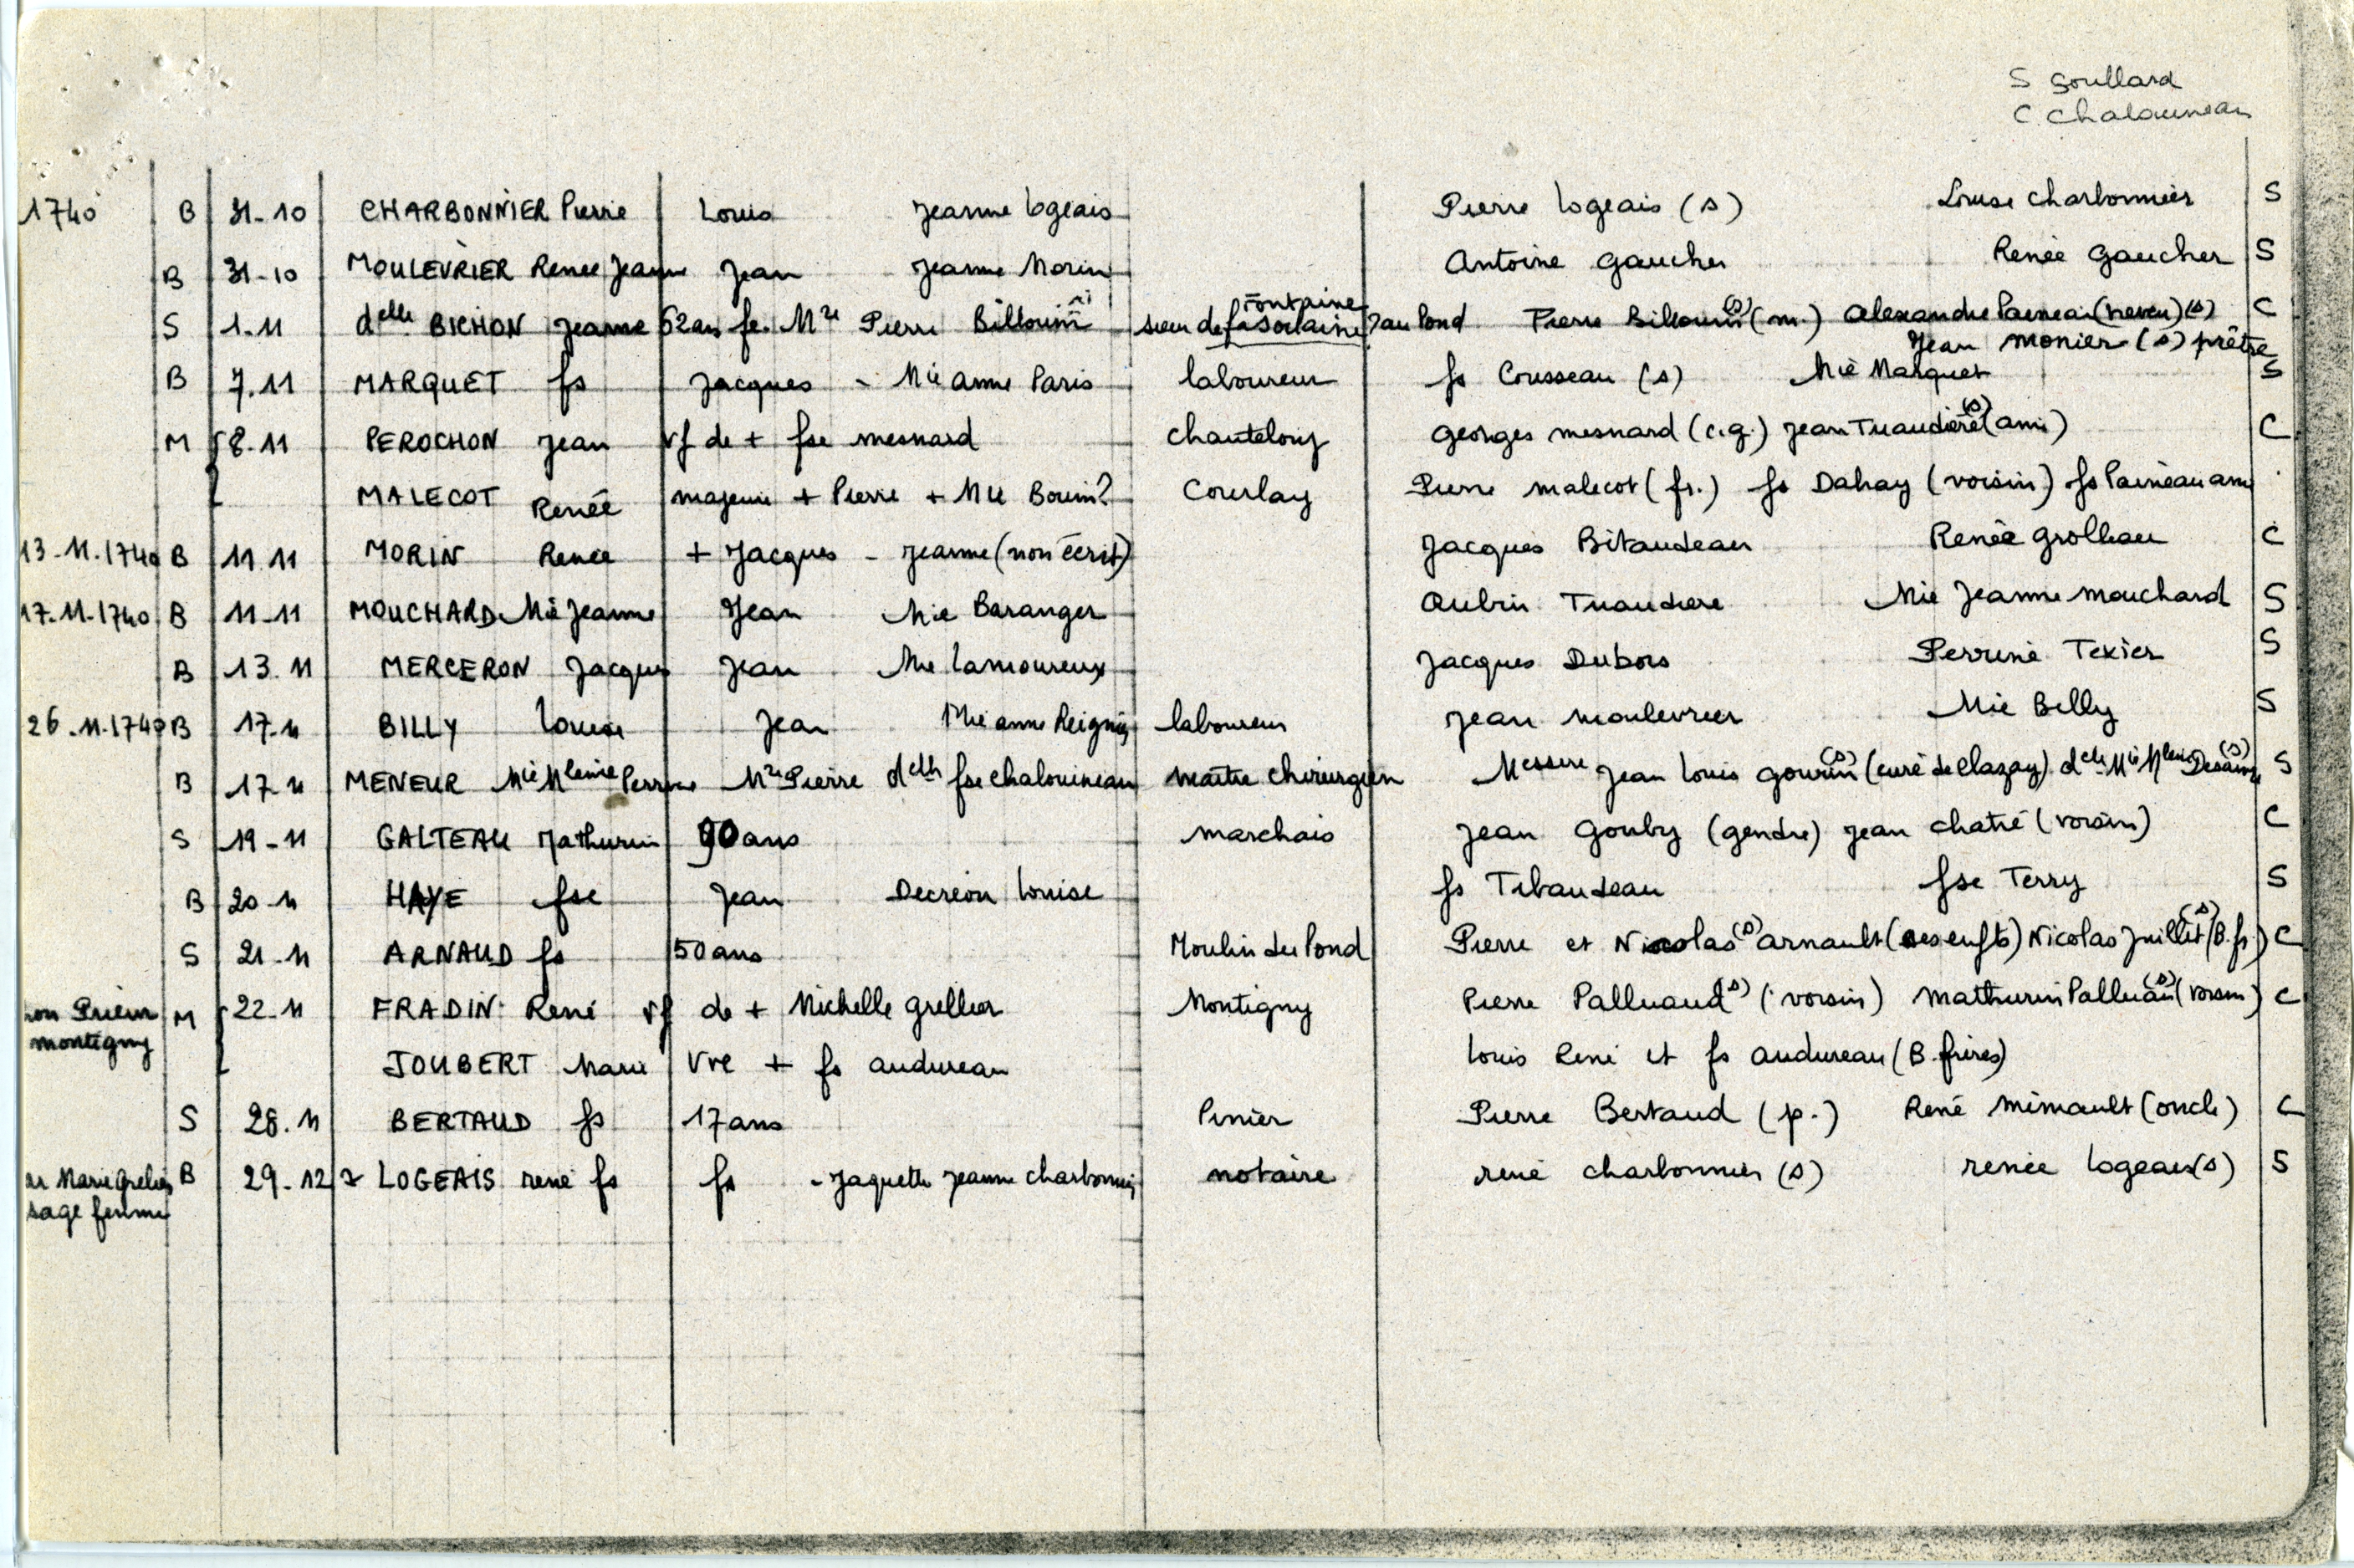 S Goullard
C. Chalouineau
1740 B 31-10 CHARBONNIER Pierre Louis Jeanne Logeais Pierre Logeais (s) Louise Charbonnier S
B 31-10 MOULEVRIER Renée Jeanne Jean Jeanne Morin Antoine Gaucher Renée Gaucher S
S 1.11 delle BICHON Jeanne 62 ans fe. Mre Pierre Billouin sieur de fa Sortaine ? Fontaine au Pond Pierre Billouin (s) (m.) Alexandre Paineau (neveu) (s) C
Jean Monier (s) prêtre
B 7.11 MARQUET fs Jacques - Mie anne Paris laboureur fs Cousseau (s) Mie Marquet S
M 8.11 PEROCHON Jean vf de + fse mesnard chanteloup Georges mesnard (c.g.) Jean Tuaudière (s) (ami) C
MALECOT Renée majeure + Pierre + Mie Bouin? Courlay Pierre malecot (fr.) fs Dahay (voisin) fs Paineau ami
13-11-1740 B 11.11 MORIN Renée + Jacques - Jeanne (non écrit) Jacques Bitaudeau Renée Grolleau C
17-11-1740 B 11-11 MOUCHARD Mie Jeanne Jean Mie Baranger Aubin Tuaudière Mie Jeanne Mouchard S
B 13.11 MERCERON Jacques Jean Mie Lamoureux Jacques Dubois Perrine Texier S
26-11-1740 B 17-11 BILLY Louise Jean Mie anne Reignier laboureur Jean Moulevrier Mie Billy S
B 17-11 MENEUR Mie Mleine Perrine Mre Pierre delle fse Chalouineau maitre chirurgien Messire Jean Louis Gourin (s) (curé de Clazay) delle Mie Mleine (s) S
S 19-11 GALTEAU Mathurin 90 ans marchais Jean Gouby (gendre) Jean chatré (voisin) C
B 20-11 HAYE fse Jean Decreon Louise fs Tibaudeau fse Terry S
S 21-11 ARNAUD fs 50 ans Moulin du Pond Pierre et Nicolas (s) arnault (ses enfts) Nicolas Juillet (s) (B.fr) C
Prieur montigny M 22-11 FRADIN René vf de + Michelle Grellier Montigny Pierre Palluaud (s) (voisin) Mathurin Palluau (s) (voisin) C
JOUBERT Marie Vve + fs audureau Louis René et fs audureau (B.frères)
S 28.11 BERTAUD fs 17 ans Pinier Pierre Bertaud (p.) René Mimault (oncle) C
Marie Grelier B 29-12 LOGEAIS rené fs fs - Jaquette Jeanne charbonnier notaire rené charbonnier (s) renée logeais (s) S
sage femme